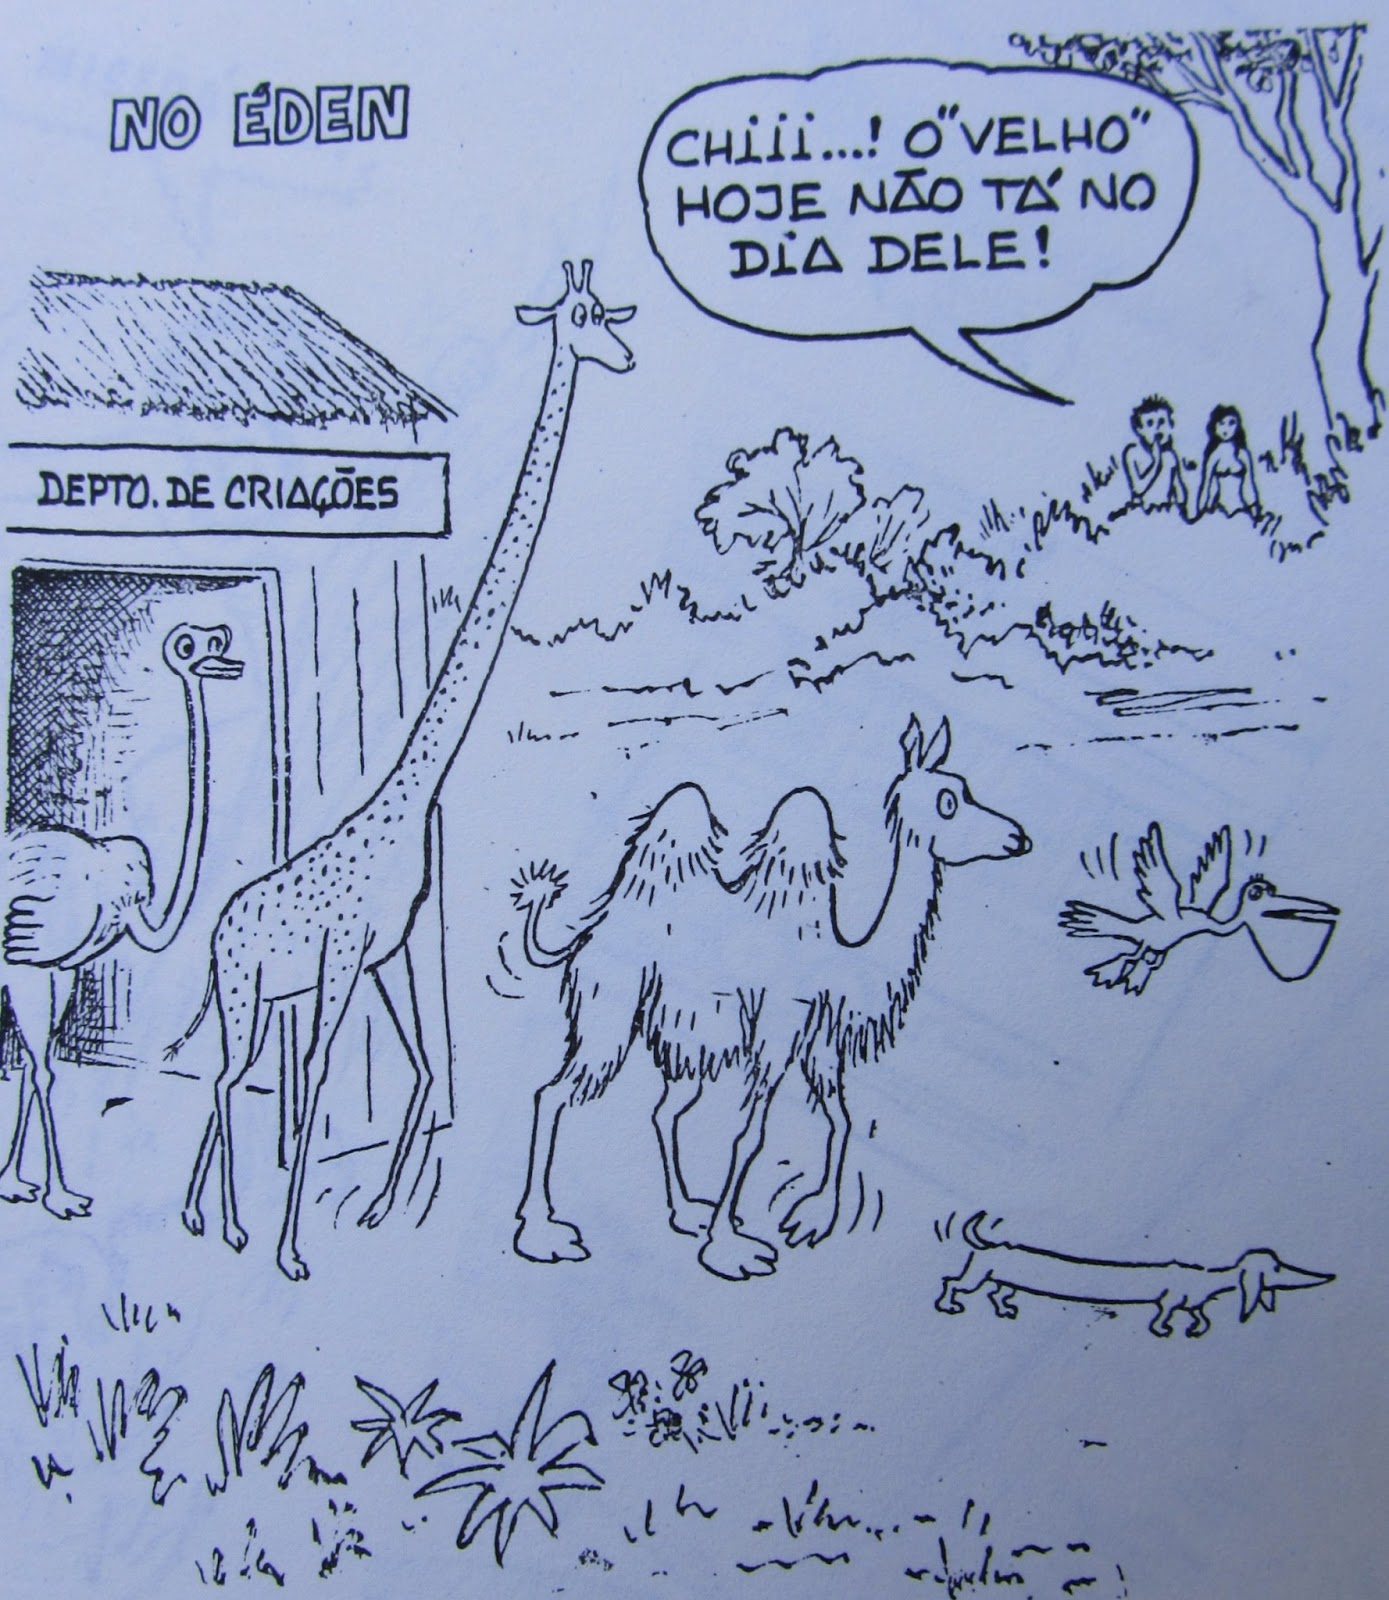 NO ÉDEN
CHIII...! O "VELHO"
HOJE NÃO TÁ NO
DIA DELE!
DEPTO. DE CRIAÇÕES